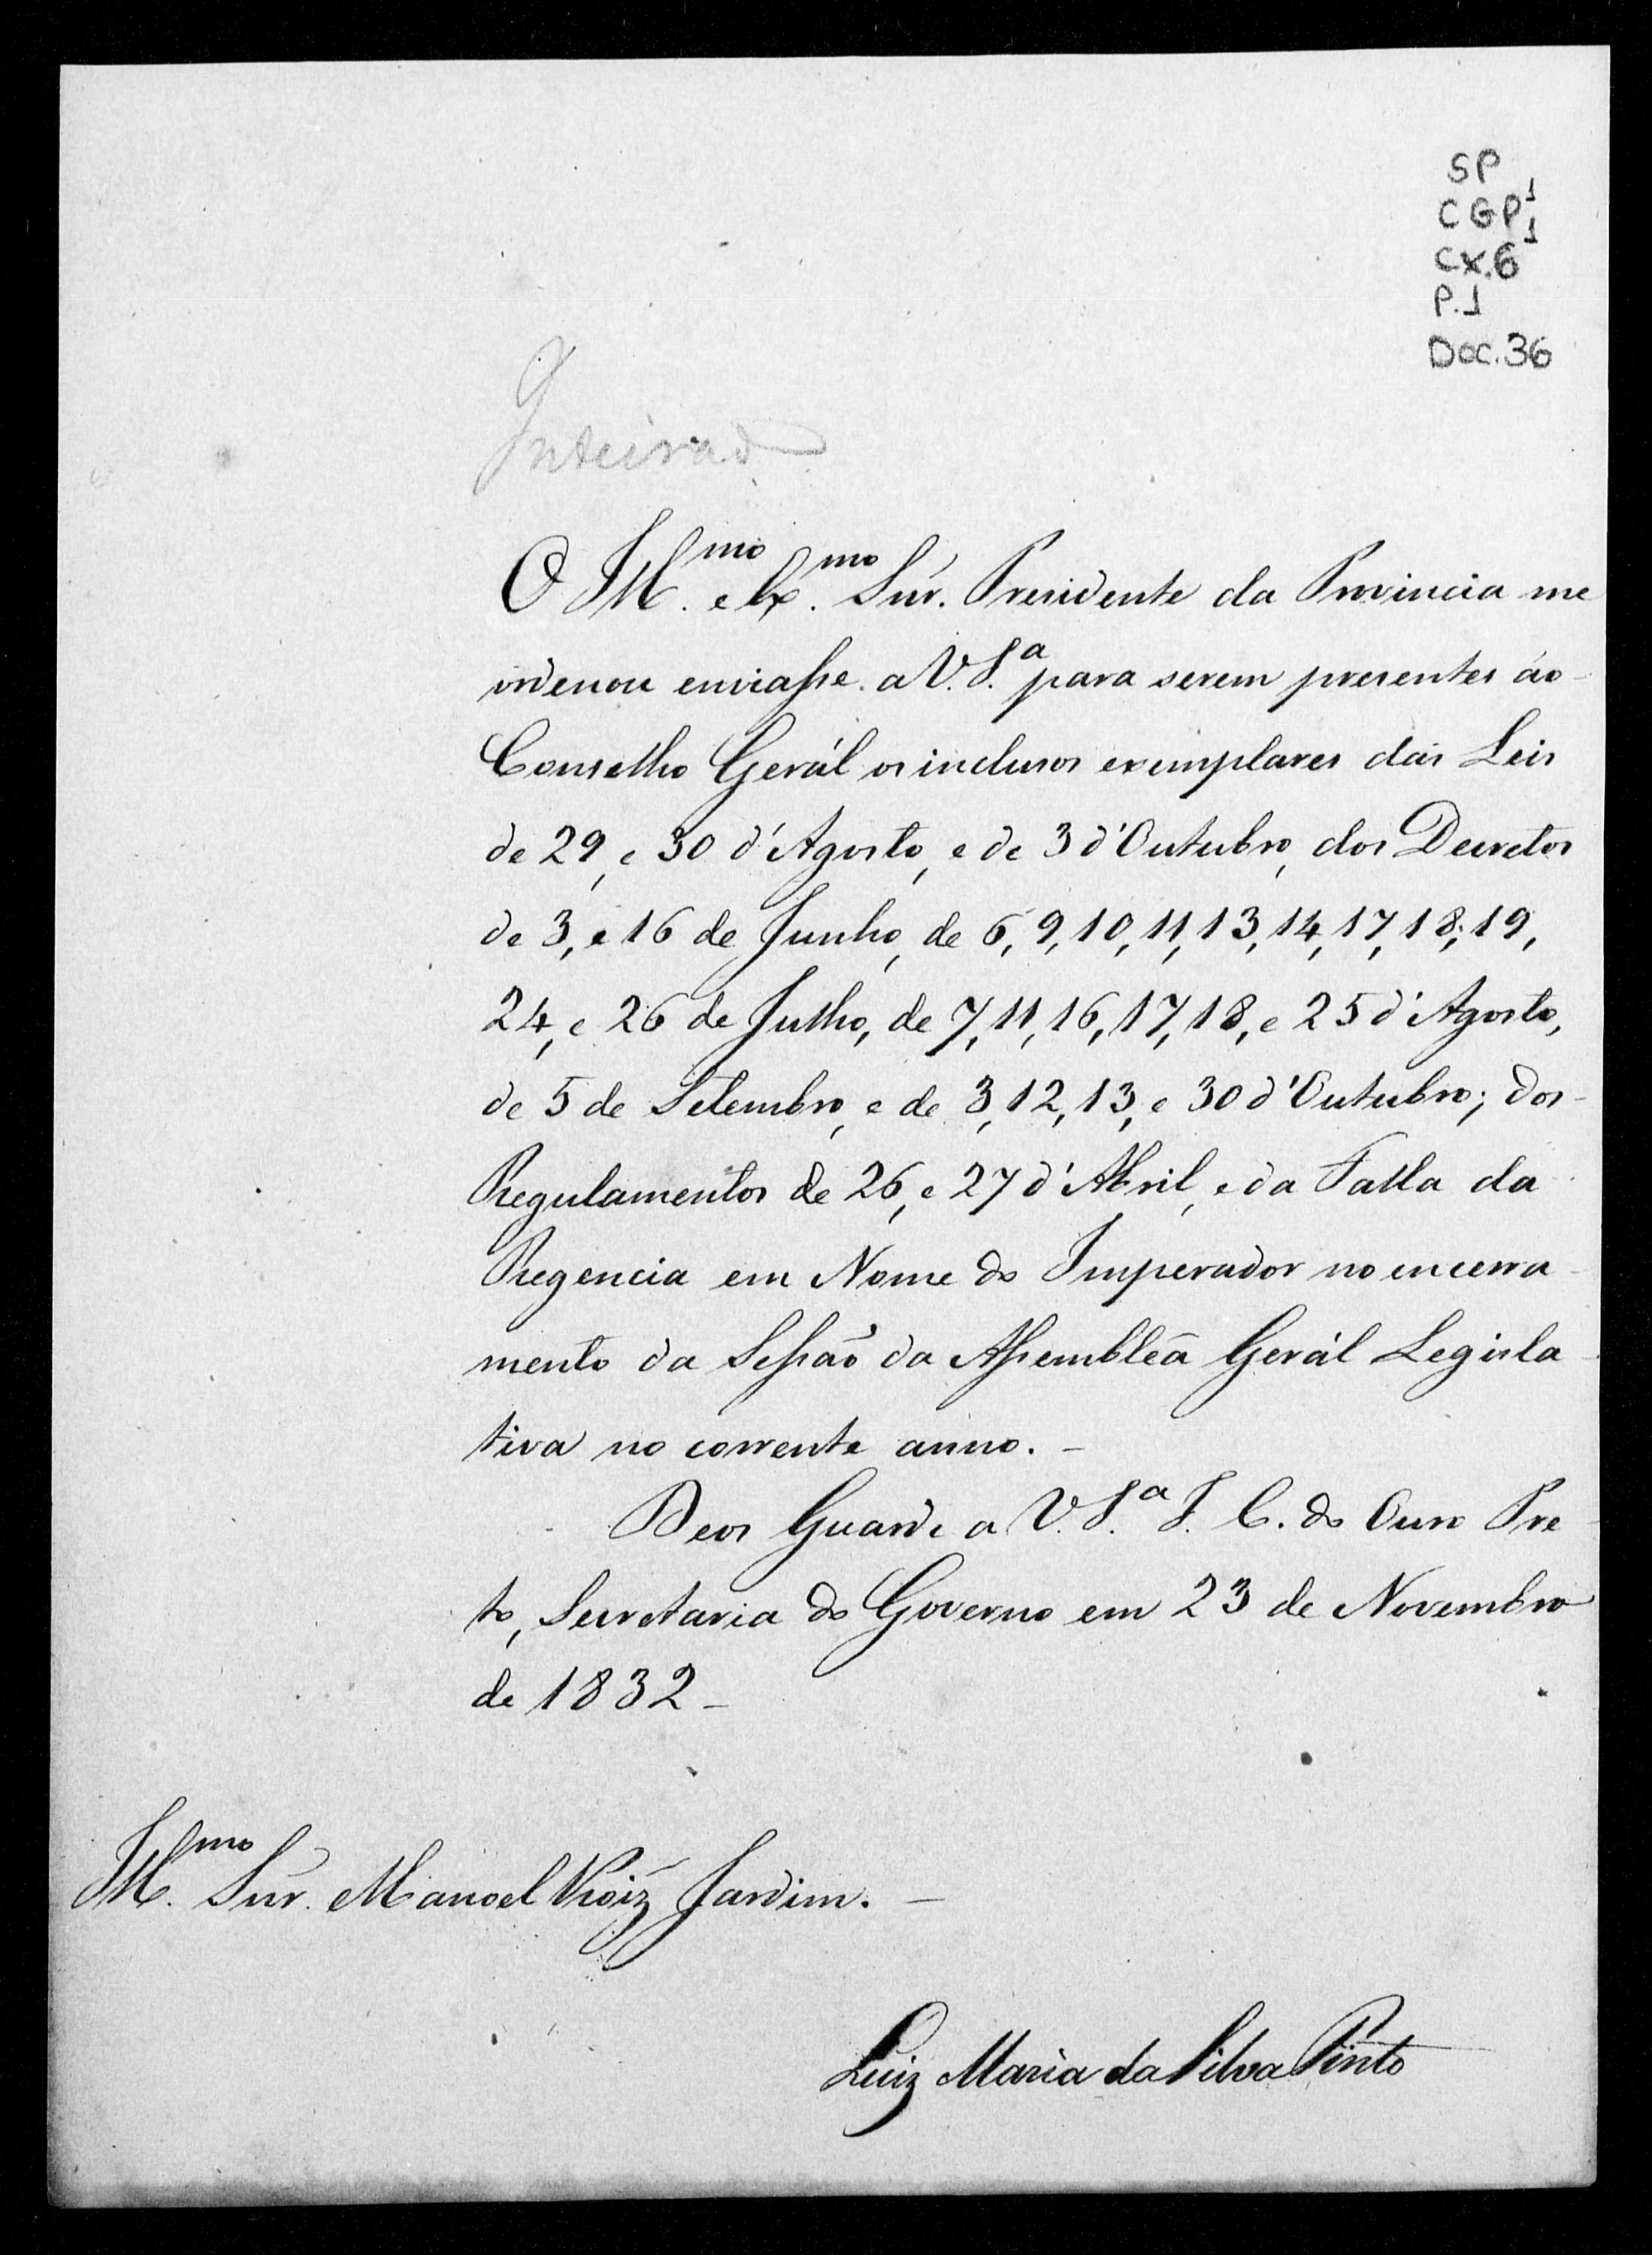 SP
CGP¹
CX.6¹
P.1
Doc.36
Inteirado
O Ill.mo e Ex.mo Snr. Presidente da Provincia me
ordenou enviasse a V.S.ª para serem presentes áo
Conselho Gerál os inclusos exemplares das Leis
de 29, e 30 d'Agosto, e de 3 d'Outubro, dos Decretos
de 3, e 16 de Junho, de 6, 9, 10, 11, 13, 14, 17, 18, 19,
24, e 26 de Julho, de 7, 11, 16, 17, 18, e 25 d'Agosto,
de 5 de Setembro, e de 3, 12, 13, e 30 d'Outubro; dos
Regulamentos de 26, e 27 d'Abril, e da Falla da
Regencia em Nome do Imperador no encerra
mento da Sessaõ da Assembleã Gerál Legisla
tiva no corrente anno. -
Deos Guarde a V.S.ª I. C. do Ouro Pre
to, Secretaria do Governo em 23 de Novembro
de 1832 -
Ill.mo Snr. Manoel Roiz Jardim. -
Luiz Maria da Silva Pinto